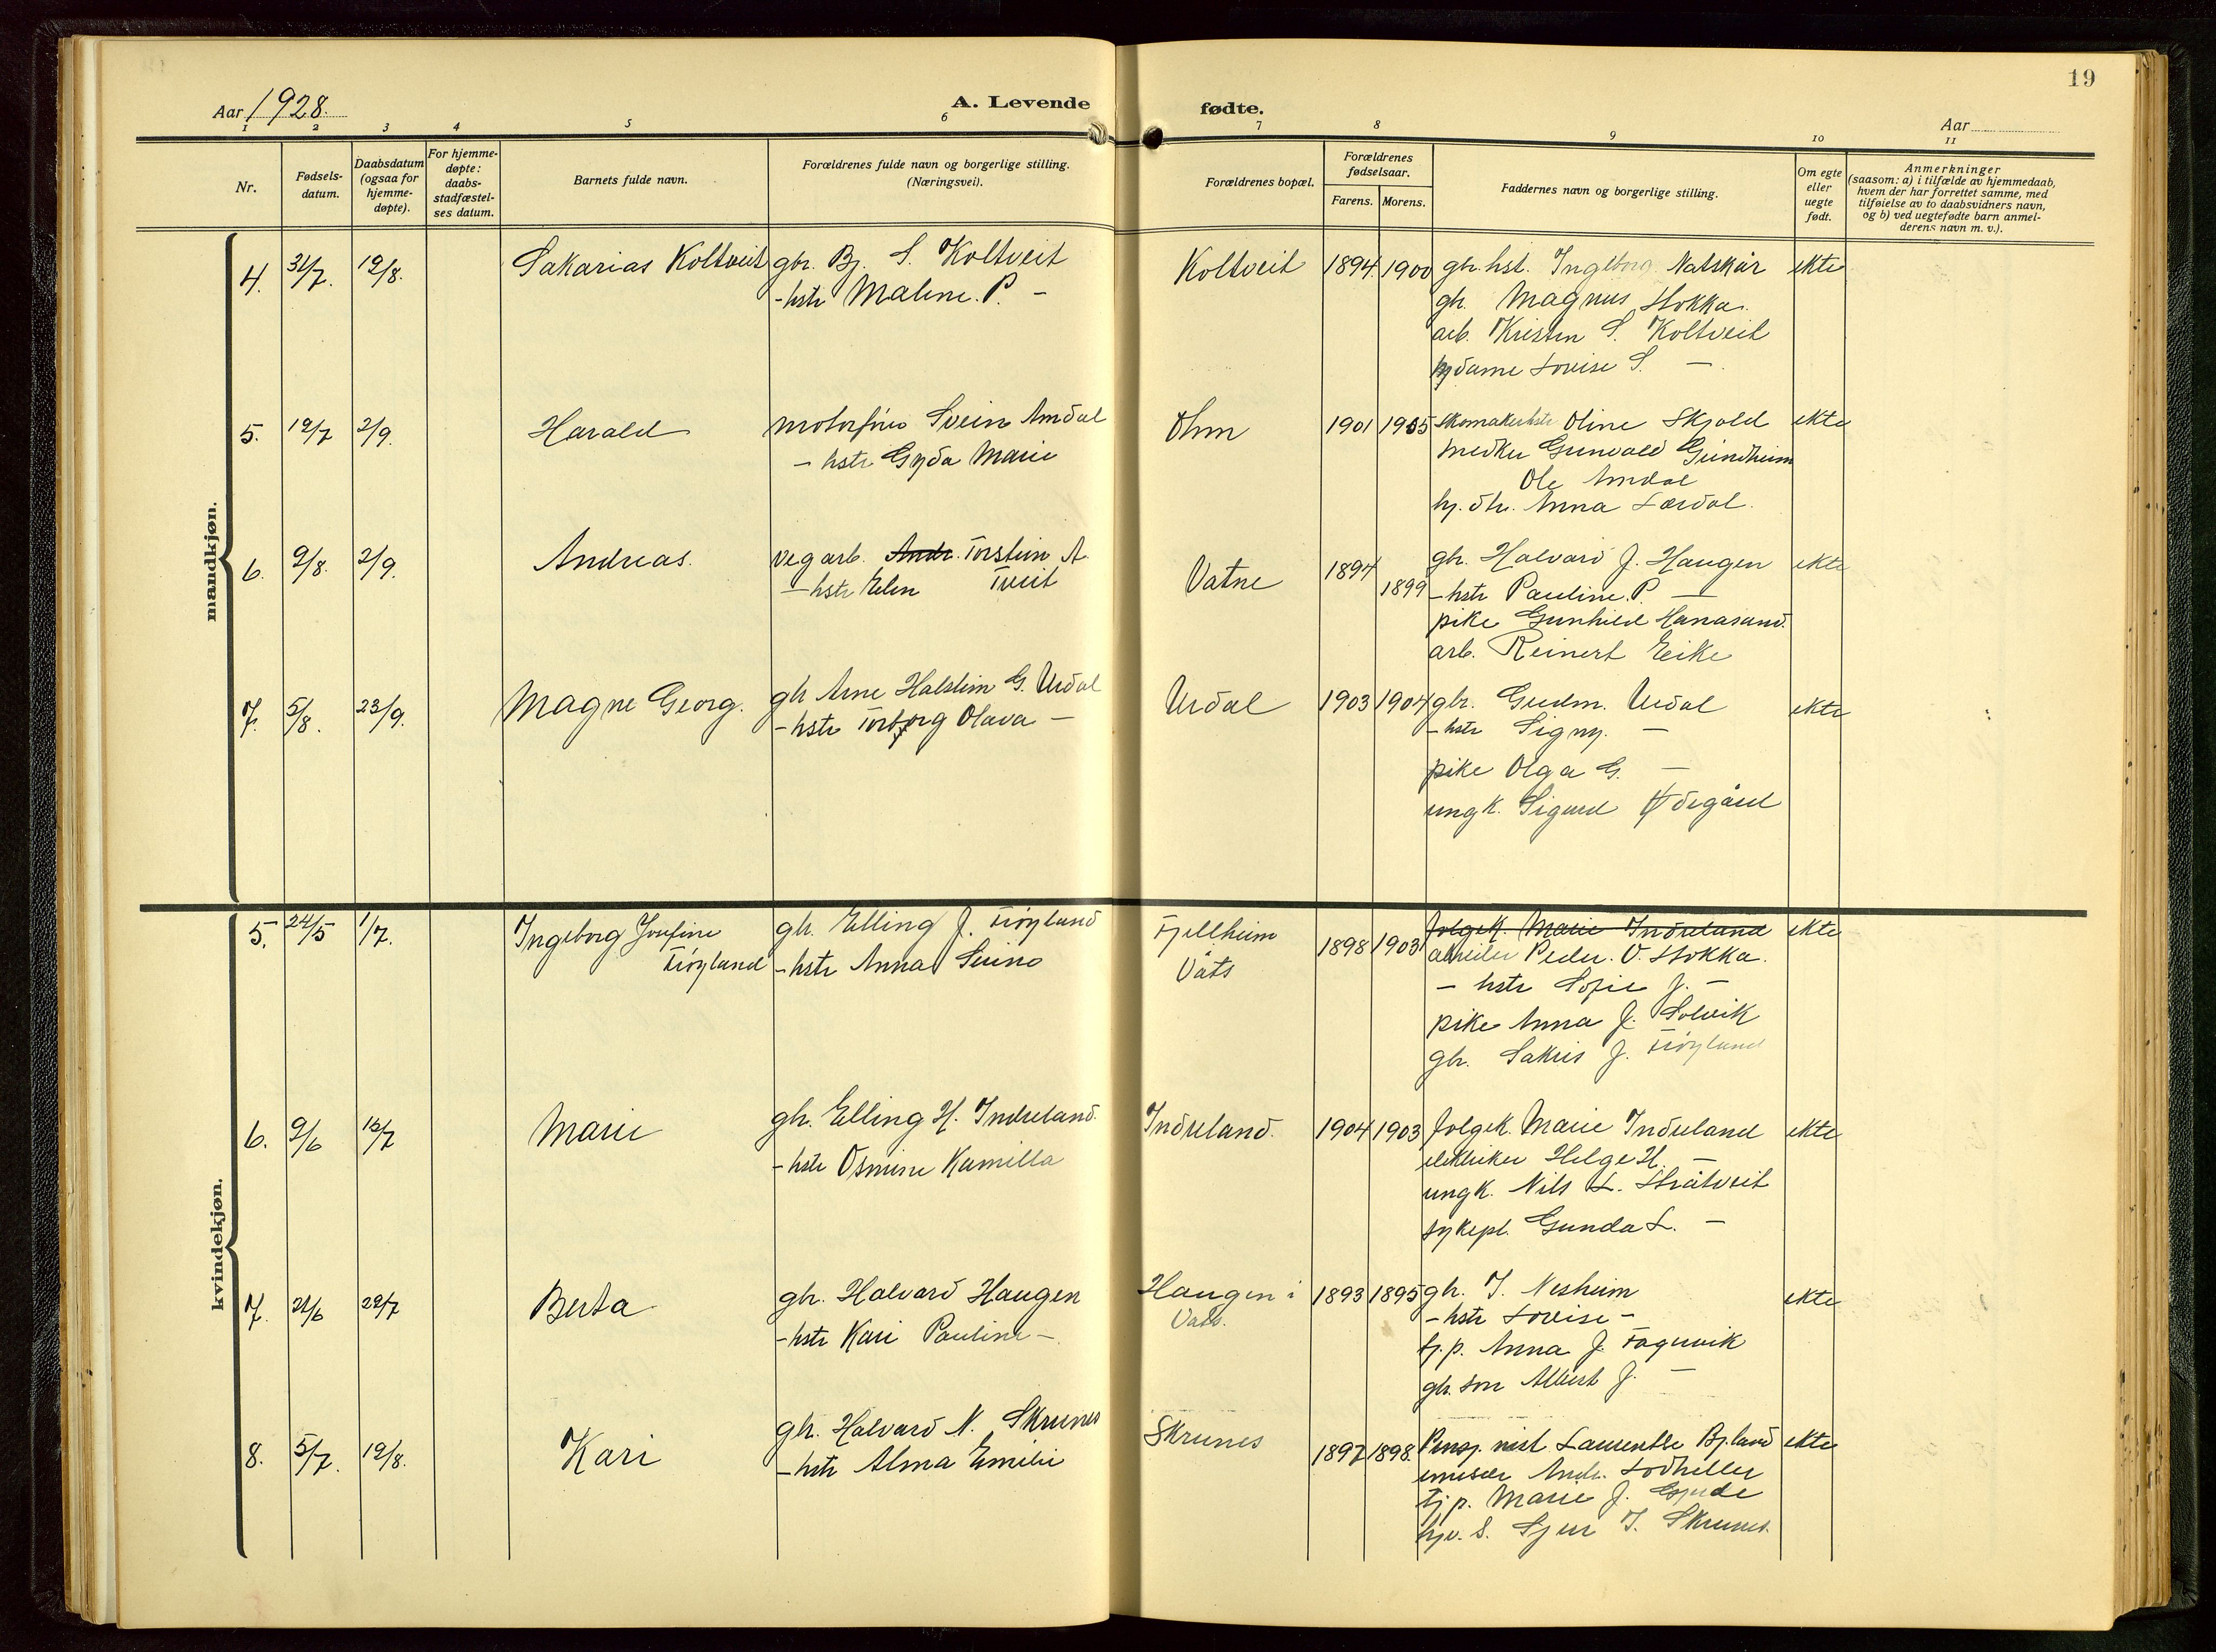 19
Aar 1928.
A. Levende fødte.
Aar
1 2 3 4 5 6 7 8 9 10 11
Nr.
Fødsels-
datum.
Daabsdatum
(ogsaa for
hjemme-
døpte).
For hjemme-
døpte:
daabs-
stadfæstel-
ses datum.
Barnets fulde navn.
Forældrenes fulde navn og borgerlige stilling.
(Næringsvei).
Forældrenes bopæl.
Forældrenes
fødselsaar.
Farens. Morens.
Faddernes navn og borgerlige stilling.
Om egte
eller
uegte
født.
Anmerkninger
(saasom: a) i tilfælde av hjemmedaab,
hvem der har forrettet samme, med
tilføielse av to daabsvidners navn,
og b) ved uegtefødte barn anmel-
derens navn m. v.).
mandkjøn.
4. 31/7. 19/8. Sakarias Koltveit gbr. Bj. S. Koltveit Koltveit 1894. 1900 gbr. hst. Ingeborg Natskår ekte
- hstr Maline. P. - gbr. Magnus Stokka.
arb. Kristen S. Koltveit
hydame Lovise S. -
5. 19/7 2/9. Harald motorfører Svein Amdal Ohm 1901 1905 skomakerhstr Oline Skjold ekte
- hstr Gyda Marie Grunvald Grindheim
Ole Amdal
hj. dtr. Anna Lærdal.
6. 9/8. 2/9. Andreas. vegarb. Andr. Torstein A. Vatne 1894 gbr. Halvard J. Haugen ekte
- hstr Elen Tveit 1899 - hstr Pauline. P. -
pike Gunhild Hanasand.
arb. Reinert Eike
7. 5/8. 23/9. Magne Georg. gbr Arne Halstein G. Urdal Urdal 1903 1904 gbr. Gudm. Urdal ekte
- hstr Torborg Olava - - hstr Signy. -
pike Olga G. -
ungk. Sigurd Ødegård
kvindekjøn.
5. 24/5 1/7. Ingeborg Josefine gbr. Elling J. Frøyland Fjellheim 1898 1903 folgek. Marie Indreland ekte
Frøyland - hstr Anna Vats arbeider Peder. O. Stokka.
- hstr Sofie J. -
pike Anna J. Solvik
gbr. Sakris J. Frøyland
6. 9/6 15/7 Marie gbr. Elling H. Indreland. Indreland. 1904 1903 folgek. Marie Indreland ekte
- hstr Osmine Kamilla elektriker Helge H. -
ungk. Nils L. Stråtveit
sykepl. Gunda L. -
7. 21/6 22/7 Berta gbr. Halvard Haugen Haugen i 1893 1895 gbr. T. Nesheim ekte
- hstr Kari Pauline - Vats. - hstr Lovise -
tj. p. Anna J. Fagervik
gbr. søn Albert J. -
8. 5/7. 19/8. Kari gbr. Halvard N. Skrunes Skrunes 1897 1898. Laurentse Bjland ekte
- hstr Alma Emilie emisær Andr. Lodheller
tj p. Marie J.
S. Sjur T. Skrunes.